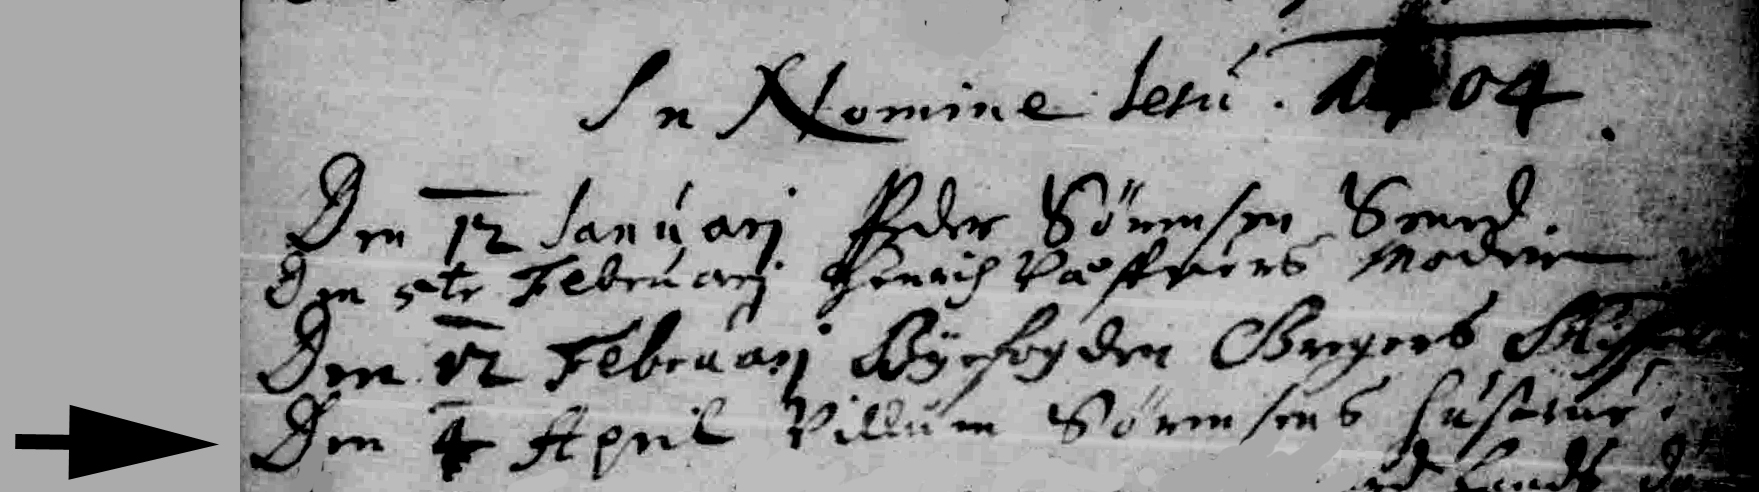 In Nomine Iesu. A 04.
Den 12 Januarj Peder Sörensen Smed.
Den 5te Februarj Henrich Moder
Den 12 Februarj Byefogden Gregers
Den 4 April Villum Sörensens hustrue.